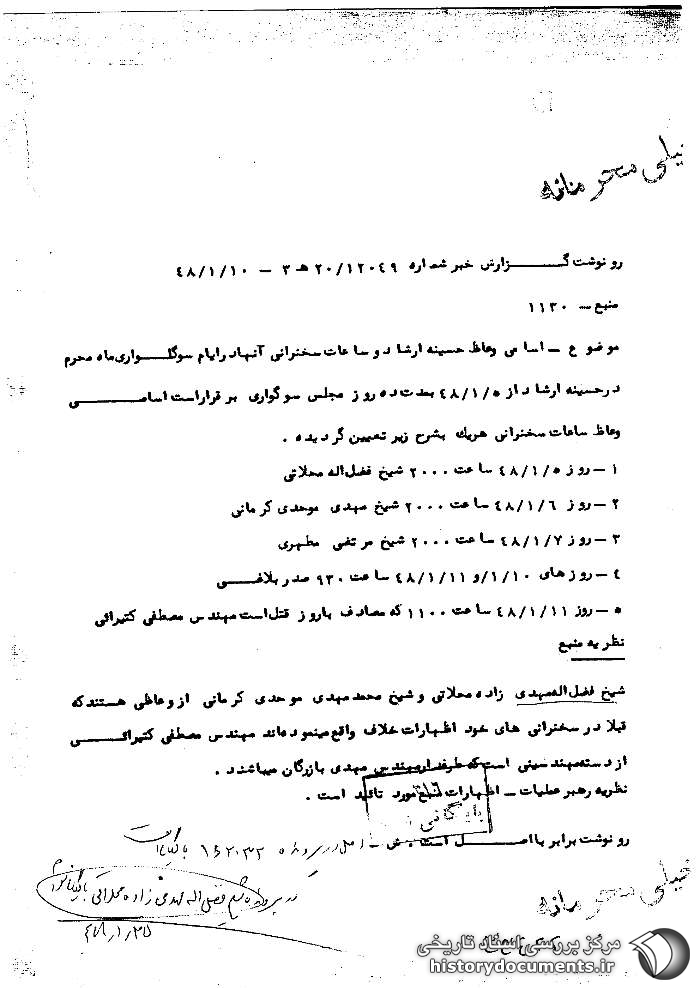 خیلی محرمانه
رونوشت گزارش خبر شماره ۲۰/۱۲۰۴۹ هـ ۳ – ۴۸/۱/۱۰
منبع – ۱۱۳۰
موضوع – اسامی وعاظ حسینه ارشاد و ساعات سخنرانی آنها در ایام سوگواری ماه محرم
در حسینه ارشاد از ۴۸/۱/۵ بمدت ده روز مجلس سوگواری برقرار است اسامی
وعاظ ساعات سخنرانی هریك بشرح زیر تعیین گردیده .
۱ – روز ۴۸/۱/۵ ساعت ۲۰۰۰ شیخ فضل‌اله محلاتی
۲ – روز ۴۸/۱/۶ ساعت ۲۰۰۰ شیخ مهدی موحدی کرمانی
۳ – روز ۴۸/۱/۷ ساعت ۲۰۰۰ شیخ مرتضی مطهری
۴ – روزهای ۱/۱۰/ و ۴۸/۱/۱۱ ساعت ۹۳۰ صدر بلاغی
۵ – روز ۴۸/۱/۱۱ ساعت ۱۱۰۰ که مصادف باروز قتل است مهندس مصطفی کتیرائی
نظریه منبع
شیخ فضل‌اله مهدی زاده محلاتی و شیخ محمد مهدی موحدی کرمانی از وعاظی هستند که
قبلا در سخنرانی های خود اظهارات خلاف واقع مینموده‌اند مهندس مصطفی کتیرائی
از دسته مهندسینی است که طرفدار مهندس مهدی بازرگان میباشند .
نظریه رهبر عملیات – اظهارات منبع مورد تائید است .
بایگانی
رونوشت برابر با اصل است
اصل در پرونده ۱۶۲۰۳۲ بایگانی است
در پرونده شیخ فضل‌اله مهدی زاده محلاتی بایگانی شود
۴۸/۱/۲۵
خیلی محرمانه
مرکز بررسی اسناد تاریخی
historydocuments.ir